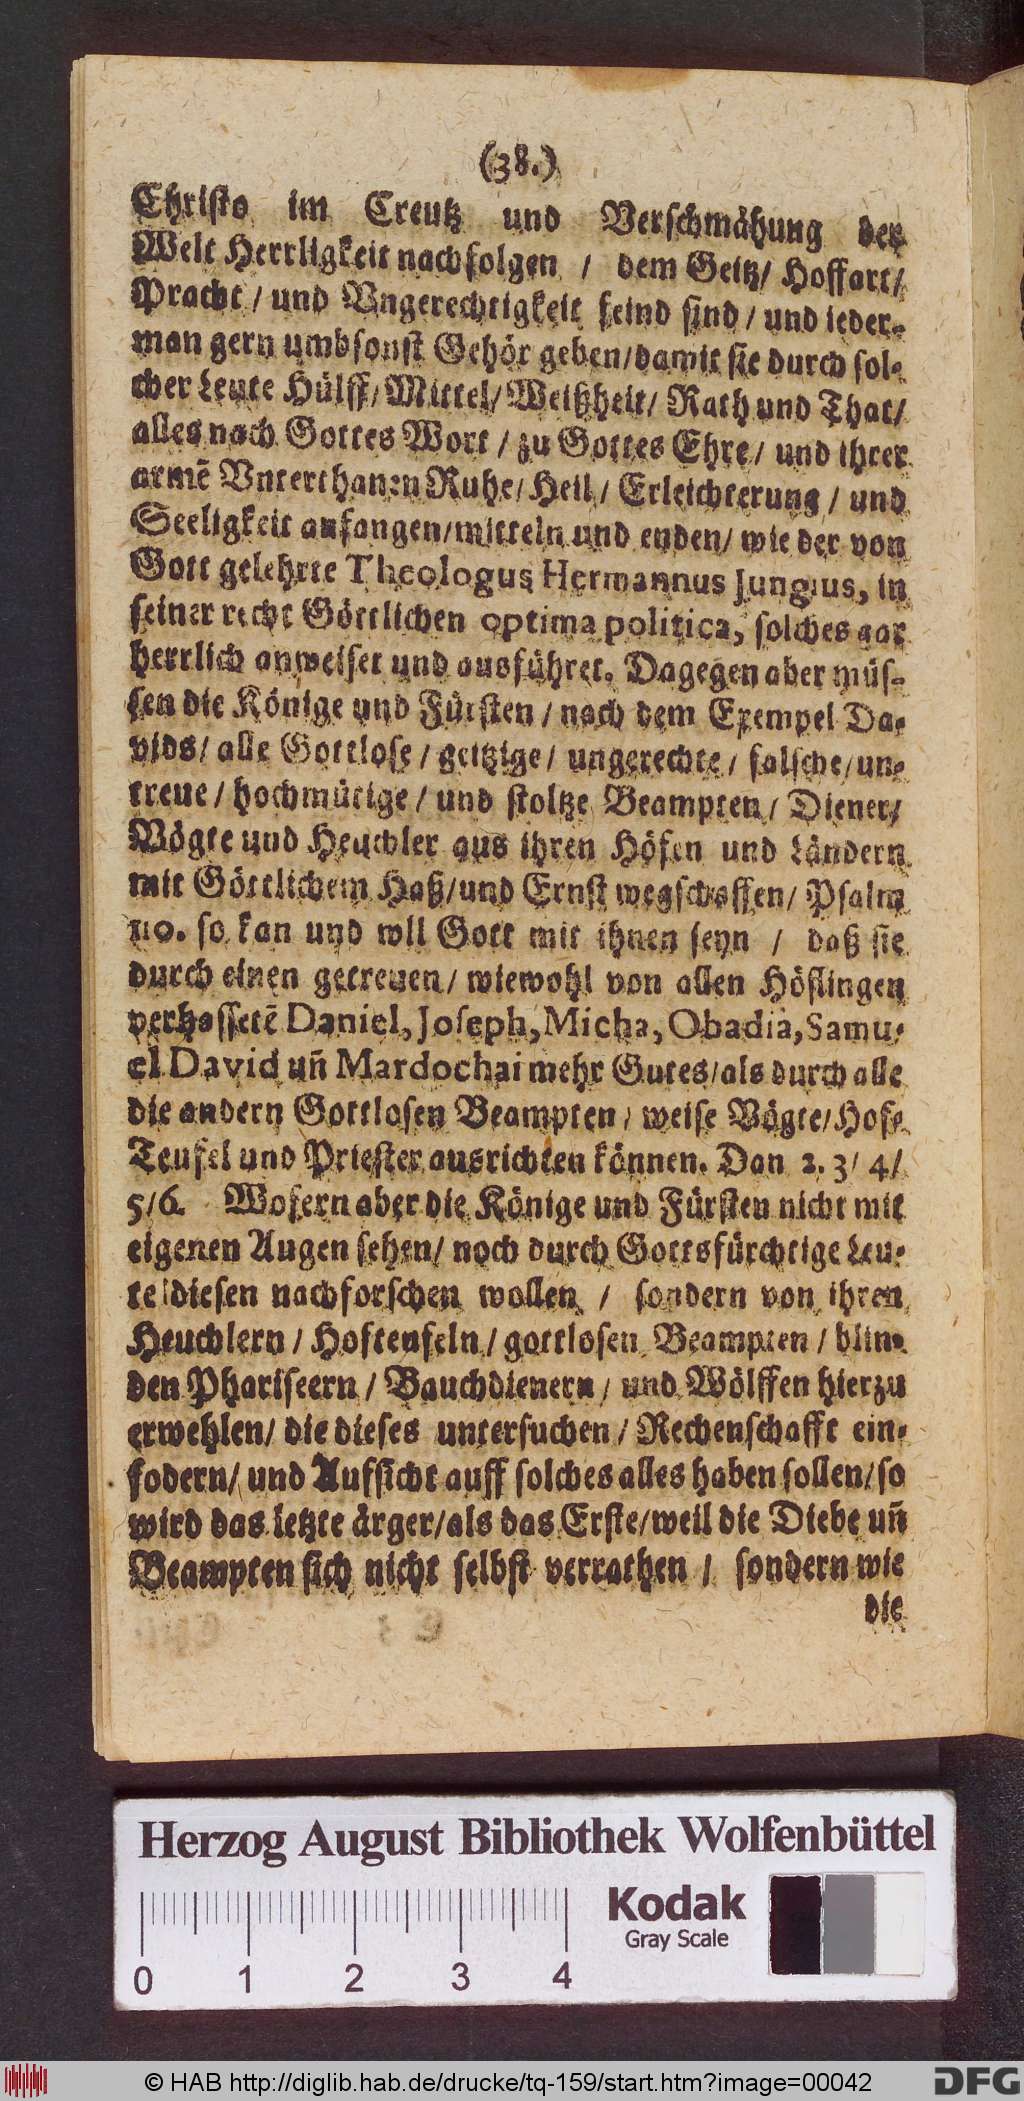 (38.)
Christo im Creutz und Verschmähung der
Welt Herrligkeit nachfolgen / dem Geitz/ Hoffart/
Pracht / und Vngerechtigkeit feind sind / und ieder-
man gern umbsonst Gehör geben/damit sie durch sol-
cher Leute Hülff/ Mittel/ Weißheit/ Rath und That/
alles nach Gottes Wort / zu Gottes Ehre / und ihrer
armē Vnterthanen Ruhe/ Heil / Erleichterung / und
Seeligkeit anfangen/mitteln und enden/ wie der von
Gott gelehrte Theologus Hermannus Jungius, in
seiner recht Göttlichen optima politica, solches gar
herrlich anweiset und ausführet. Dagegen aber müs-
sen die Könige und Fürsten / nach dem Exempel Da-
vids/ alle Gottlose / geitzige / ungerechte / falsche/un-
treue / hochmütige / und stoltze Beampten / Diener/
Vögte und Heuchler aus ihren Höfen und Ländern
mit Göttlichem Haß/und Ernst wegschaffen/ Psalm
110. so kan und wll Gott mit ihnen seyn / daß sie
durch einen getreuen/ wiewohl von allen Höflingen
verhassetē Daniel, Joseph, Micha, Obadia, Samu-
el David uñ Mardochai mehr Gutes/als durch alle
die andern Gottlosen Beampten / weise Vögte/Hof-
Teufel und Priester ausrichten können. Dan 2. 3/ 4/
5/6. Wofern aber die Könige und Fürsten nicht mit
eigenen Augen sehen/ noch durch Gottsfürchtige Leu-
te/diesen nachforschen wollen / sondern von ihren
Heuchlern / Hofteufeln / gottlosen Beampten / blin-
den Phariseern / Bauchdienern / und Wölffen hierzu
erwehlen/ die dieses untersuchen / Rechenschafft ein-
fodern/ und Aufsicht auff solches alles haben sollen/so
wird das letzte ärger/als das Erste/weil die Diebe uñ
Beampten sich nicht selbst verrathen / sondern wie
die
Herzog August Bibliothek Wolfenbüttel
Kodak
Gray Scale
0 1 2 3 4
© HAB http://diglib.hab.de/drucke/tq-159/start.htm?image=00042
DFG